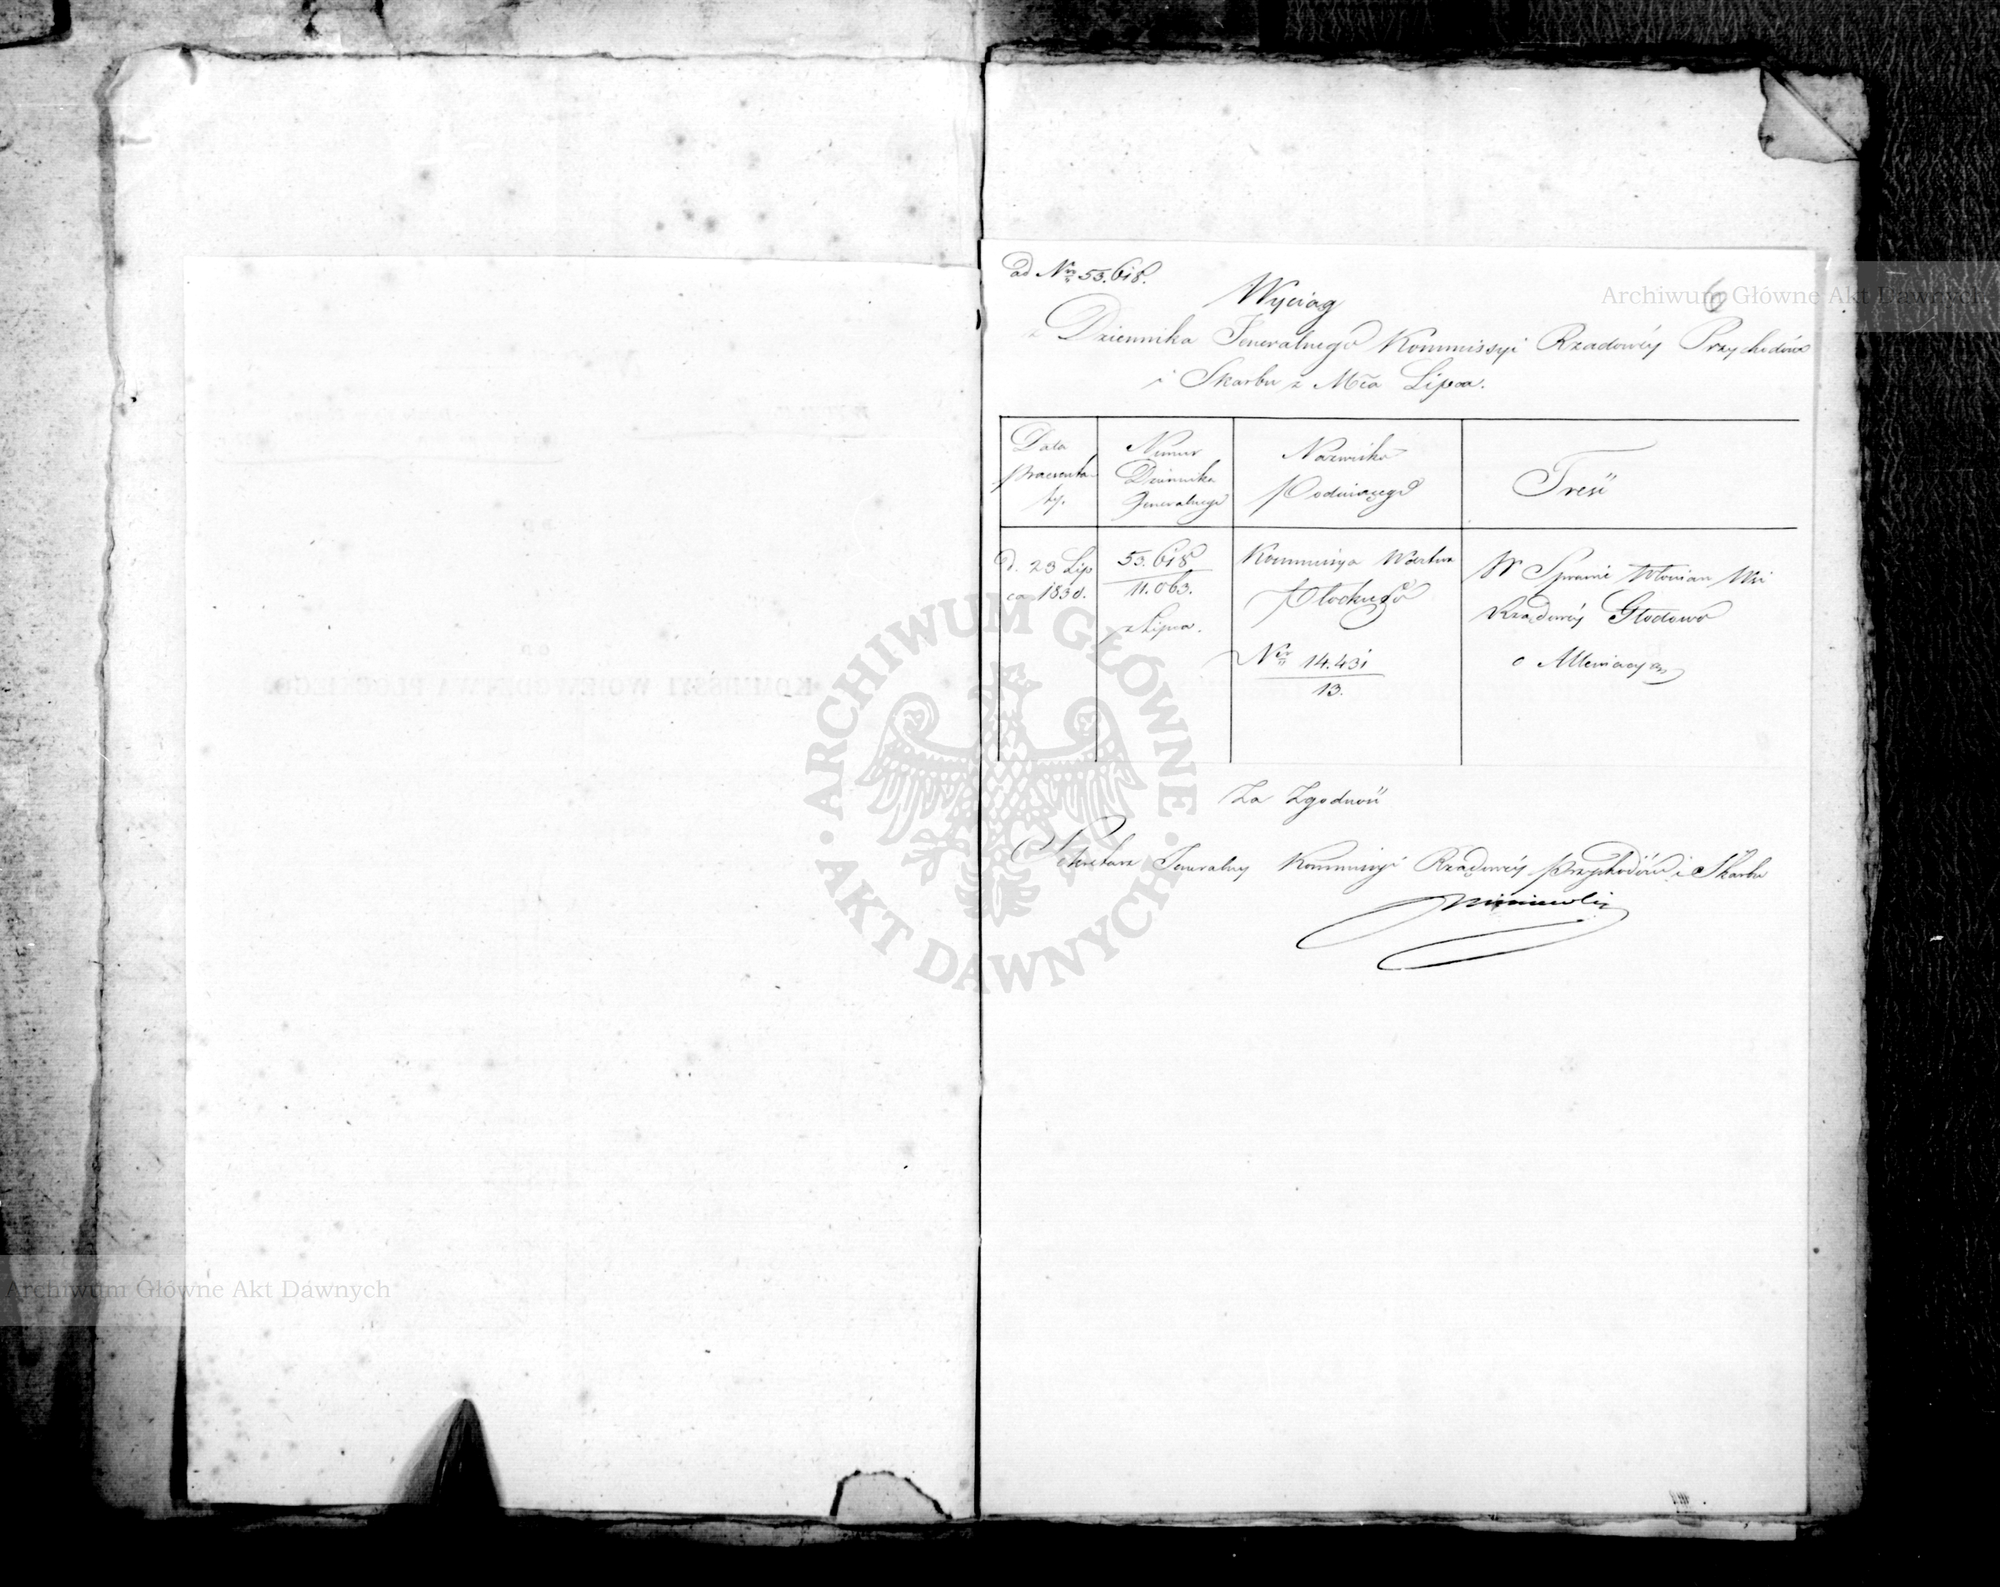 ad Nr 53.618.
6
Wyciąg
z Dziennika Jeneralnego Kommissyi Rządowéy Przychodów
i Skarbu z Mca Lipca.
Data
praezenta
ty.
Numer
Dziennika
Jeneralnego
Nazwisko
Podaiącego
Treść
d. 23 Lip
ca 1830.
53.618
11.063.
z Lipca.
Kommissya Wdztwa
Płockiego
Nr 14.431
13.
W Sprawie Włościan Wsi
Rządowéy
o
Za Zgodność
Sekretarz Jeneralny Kommissyi Rządowéy Przychodów i Skarbu
KOMMISSYI WOIEWODZTWA PŁOCKIEGO
ARCHIWUM GŁÓWNE · AKT DAWNYCH ·
Archiwum Główne Akt Dawnych
Archiwum Główne Akt Dawnych